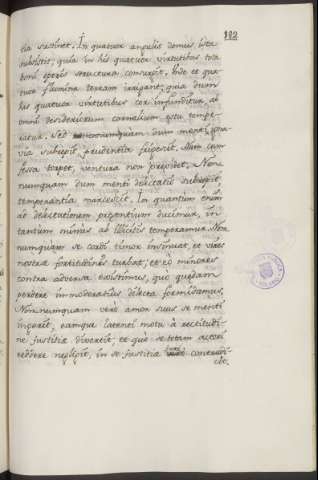 182
tia sustinet. In quatuor angulis domus ista
subsistit; quia in his quatuor virtutibus tota
boni operis structura consurgit. Unde et qua-
tuor flumina terram irrigant; quia dum
his quatuor virtutibus cor infunditur, ab
omni desideriorum carnalium æstu tempe-
ratur. Sed nonnunquam dum menti igna-
via subrepit, prudentia frigescit. Nam cum
fessa torpet, ventura non prævidet. Non-
nunquam dum menti delectatio subrepit,
temperantia marcescit. In quantum enim
ad delectationem præsentium ducimur, in
tantum minus ab illicitis temperamus. Non
nunquam se cordi timor insinuat, et vires
nostræ fortitudinis turbat, et eo minores
contra adversa existimus, quò quædam
perdere immoderatius dilecta formidamus.
Nonnunquam verò amor suus se menti
ingerit, eamque latenti motu à rectitudi-
ne justitiæ divertit, et quò se totam auctori
reddere negligit, in se justitiæ contradi-
cit.